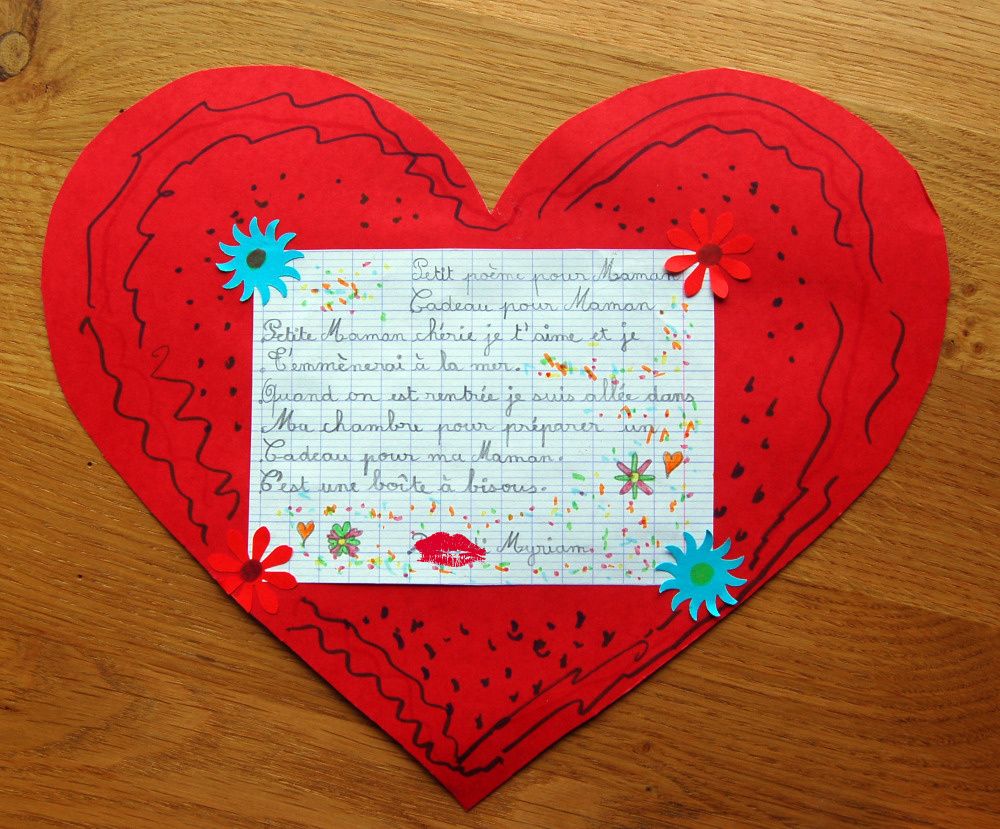 Petit poème pour Maman
Cadeau pour Maman
Petite Maman chérie je t'aime et je
T'emmènerai à la mer.
Quand on est rentrée je suis allée dans
Ma chambre pour préparer un
Cadeau pour ma Maman.
C'est une boîte à bisous.
Myriam.